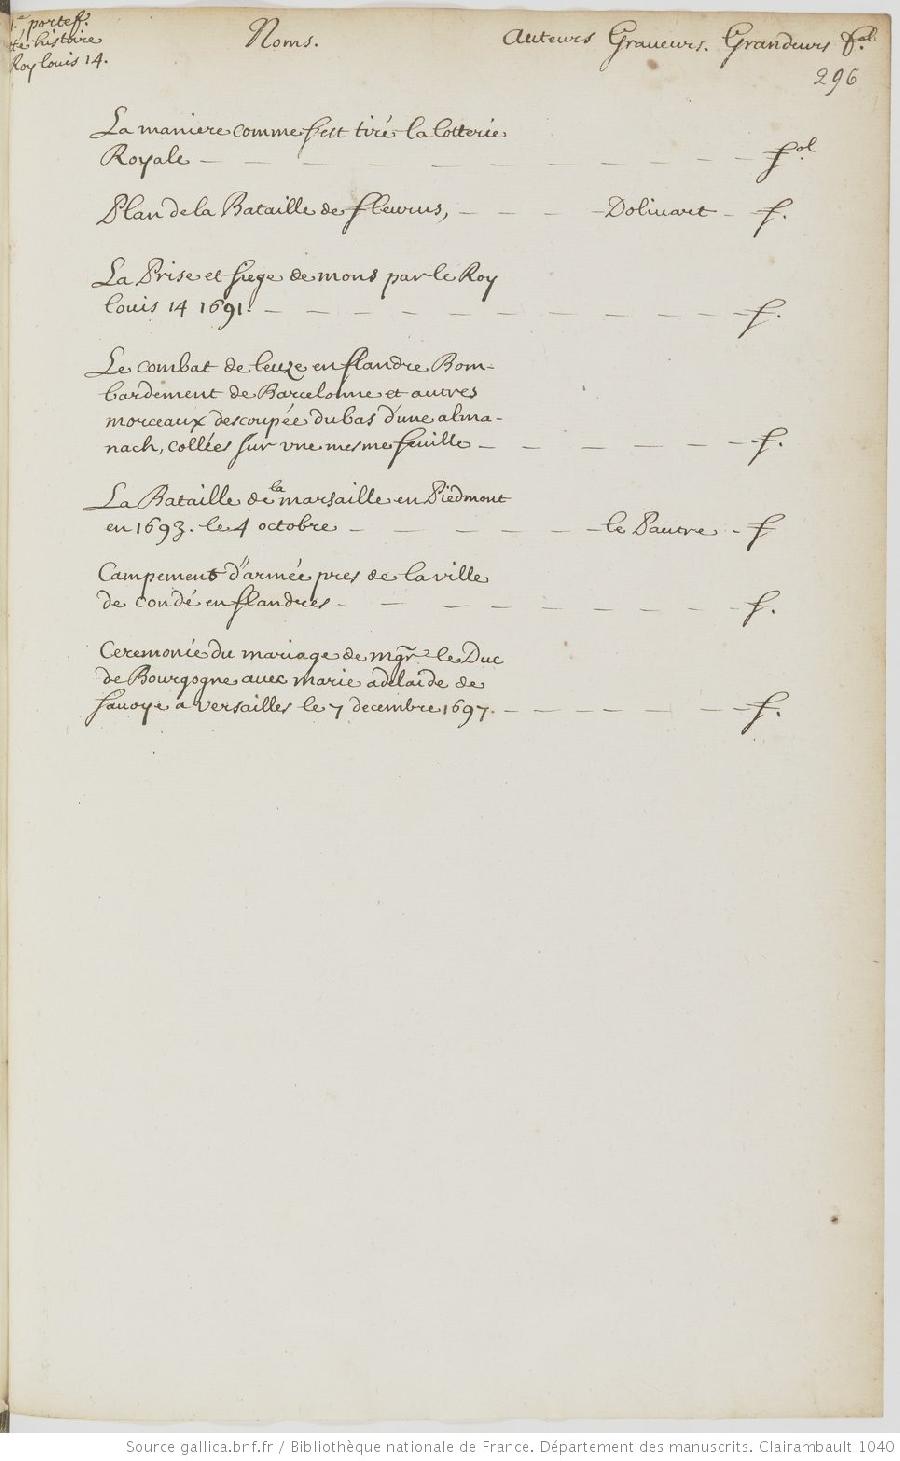 portef.
histoire
Roy louis 14.
Noms. Auteurs Graveurs. Grandeurs fol.
296
La maniere comme s'est tiré la lotterie
Royale — fol.
Plan de la Bataille de fleurus, — Dolivart — f.
La Prise et siege de mons par le Roy
louis 14 1691. — f.
Le combat de leuze en flandre Bom-
bardement de Barcelonne et autres
morceaux descoupée du bas d'une alma-
nach, collées sur une mesme feuille — f.
La Bataille de la marsaille en Piedmont
en 1693. le 4 octobre — le Pautre — f
Campement d'armée pres de la ville
de condé en flandres — f.
Ceremonie du mariage de mgr. le Duc
de Bourgogne avec marie adelaide de
savoye a versailles le 7 decembre 1697. — f.
Source gallica.bnf.fr / Bibliothèque nationale de France. Département des manuscrits. Clairambault 1040